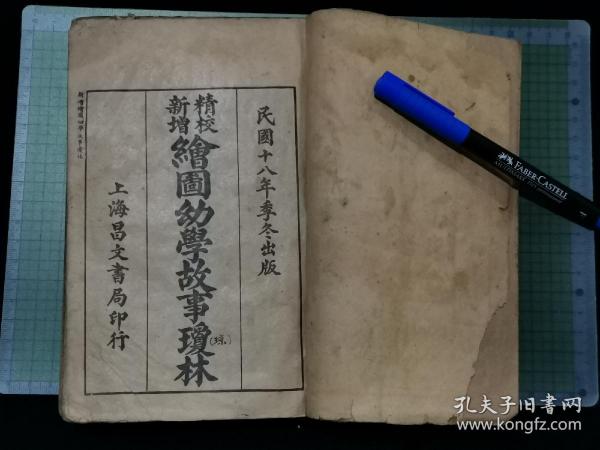 民國十八年季冬出版
精校
新增
繪圖幼學故事瓊林
(琼)
上海昌文書局印行
FABER-CASTELL
孔夫子旧书网
www.kongfz.com